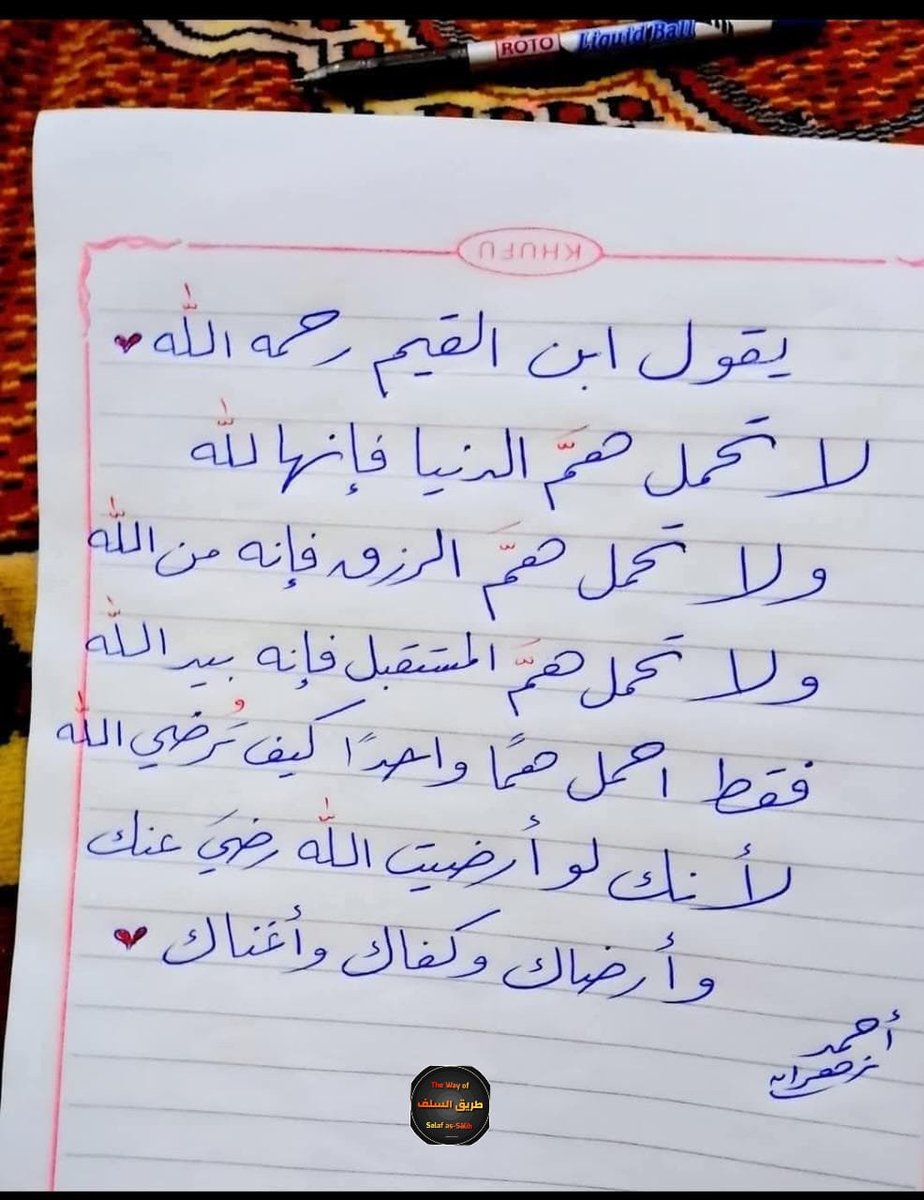 ROTO Liquid Ball
KHUFU
يقول ابن القيم رحمه الله ♥
لا تحمل همَّ الدنيا فإنها لله
ولا تحمل همَّ الرزق فإنه من الله
ولا تحمل همَّ المستقبل فإنه بيد الله
فقط احمل همًا واحدًا كيف تُرضي الله
لأنك لو أرضيت الله رضيَ عنك
وأرضاك وكفاك وأغناك ♥
أحمد
زهران
The Way of
طريق السلف
Salaf as-Salih